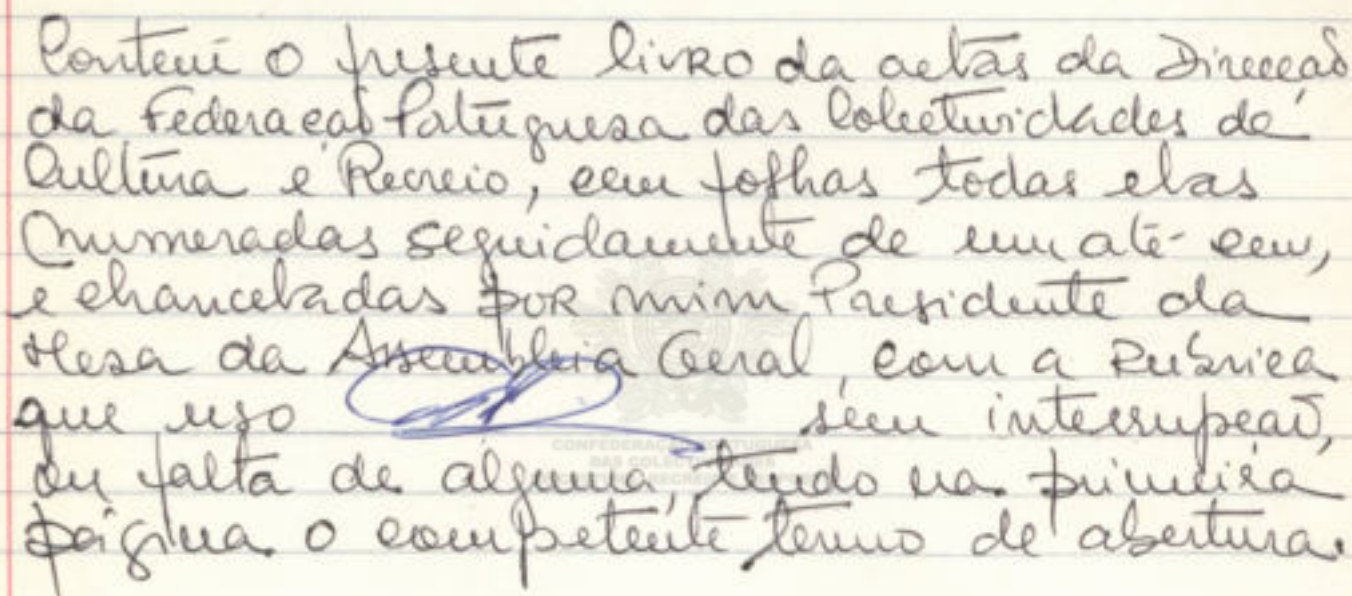 Contem o presente livro da actas da Direcção
da Federação Portuguesa das Colectividades de
Cultura e Recreio, cem folhas todas elas
numeradas seguidamente de um até cem,
e chanceladas por mim Presidente da
Mesa da Assembleia Geral, com a Rubrica
que uso sem interrupção,
ou falta de alguma, tendo na primeira
página o competente termo de abertura.
CONFEDERAÇÃO PORTUGUESA
DAS COLECTIVIDADES